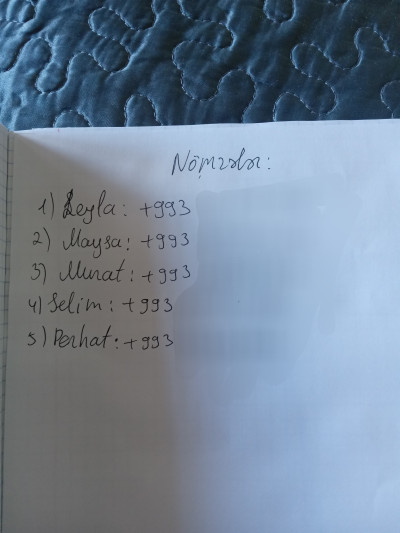 Nömrələr:
1) Leyla: +993
2) Maysa: +993
3) Murat: +993
4) Selim: +993
5) Perhat: +993